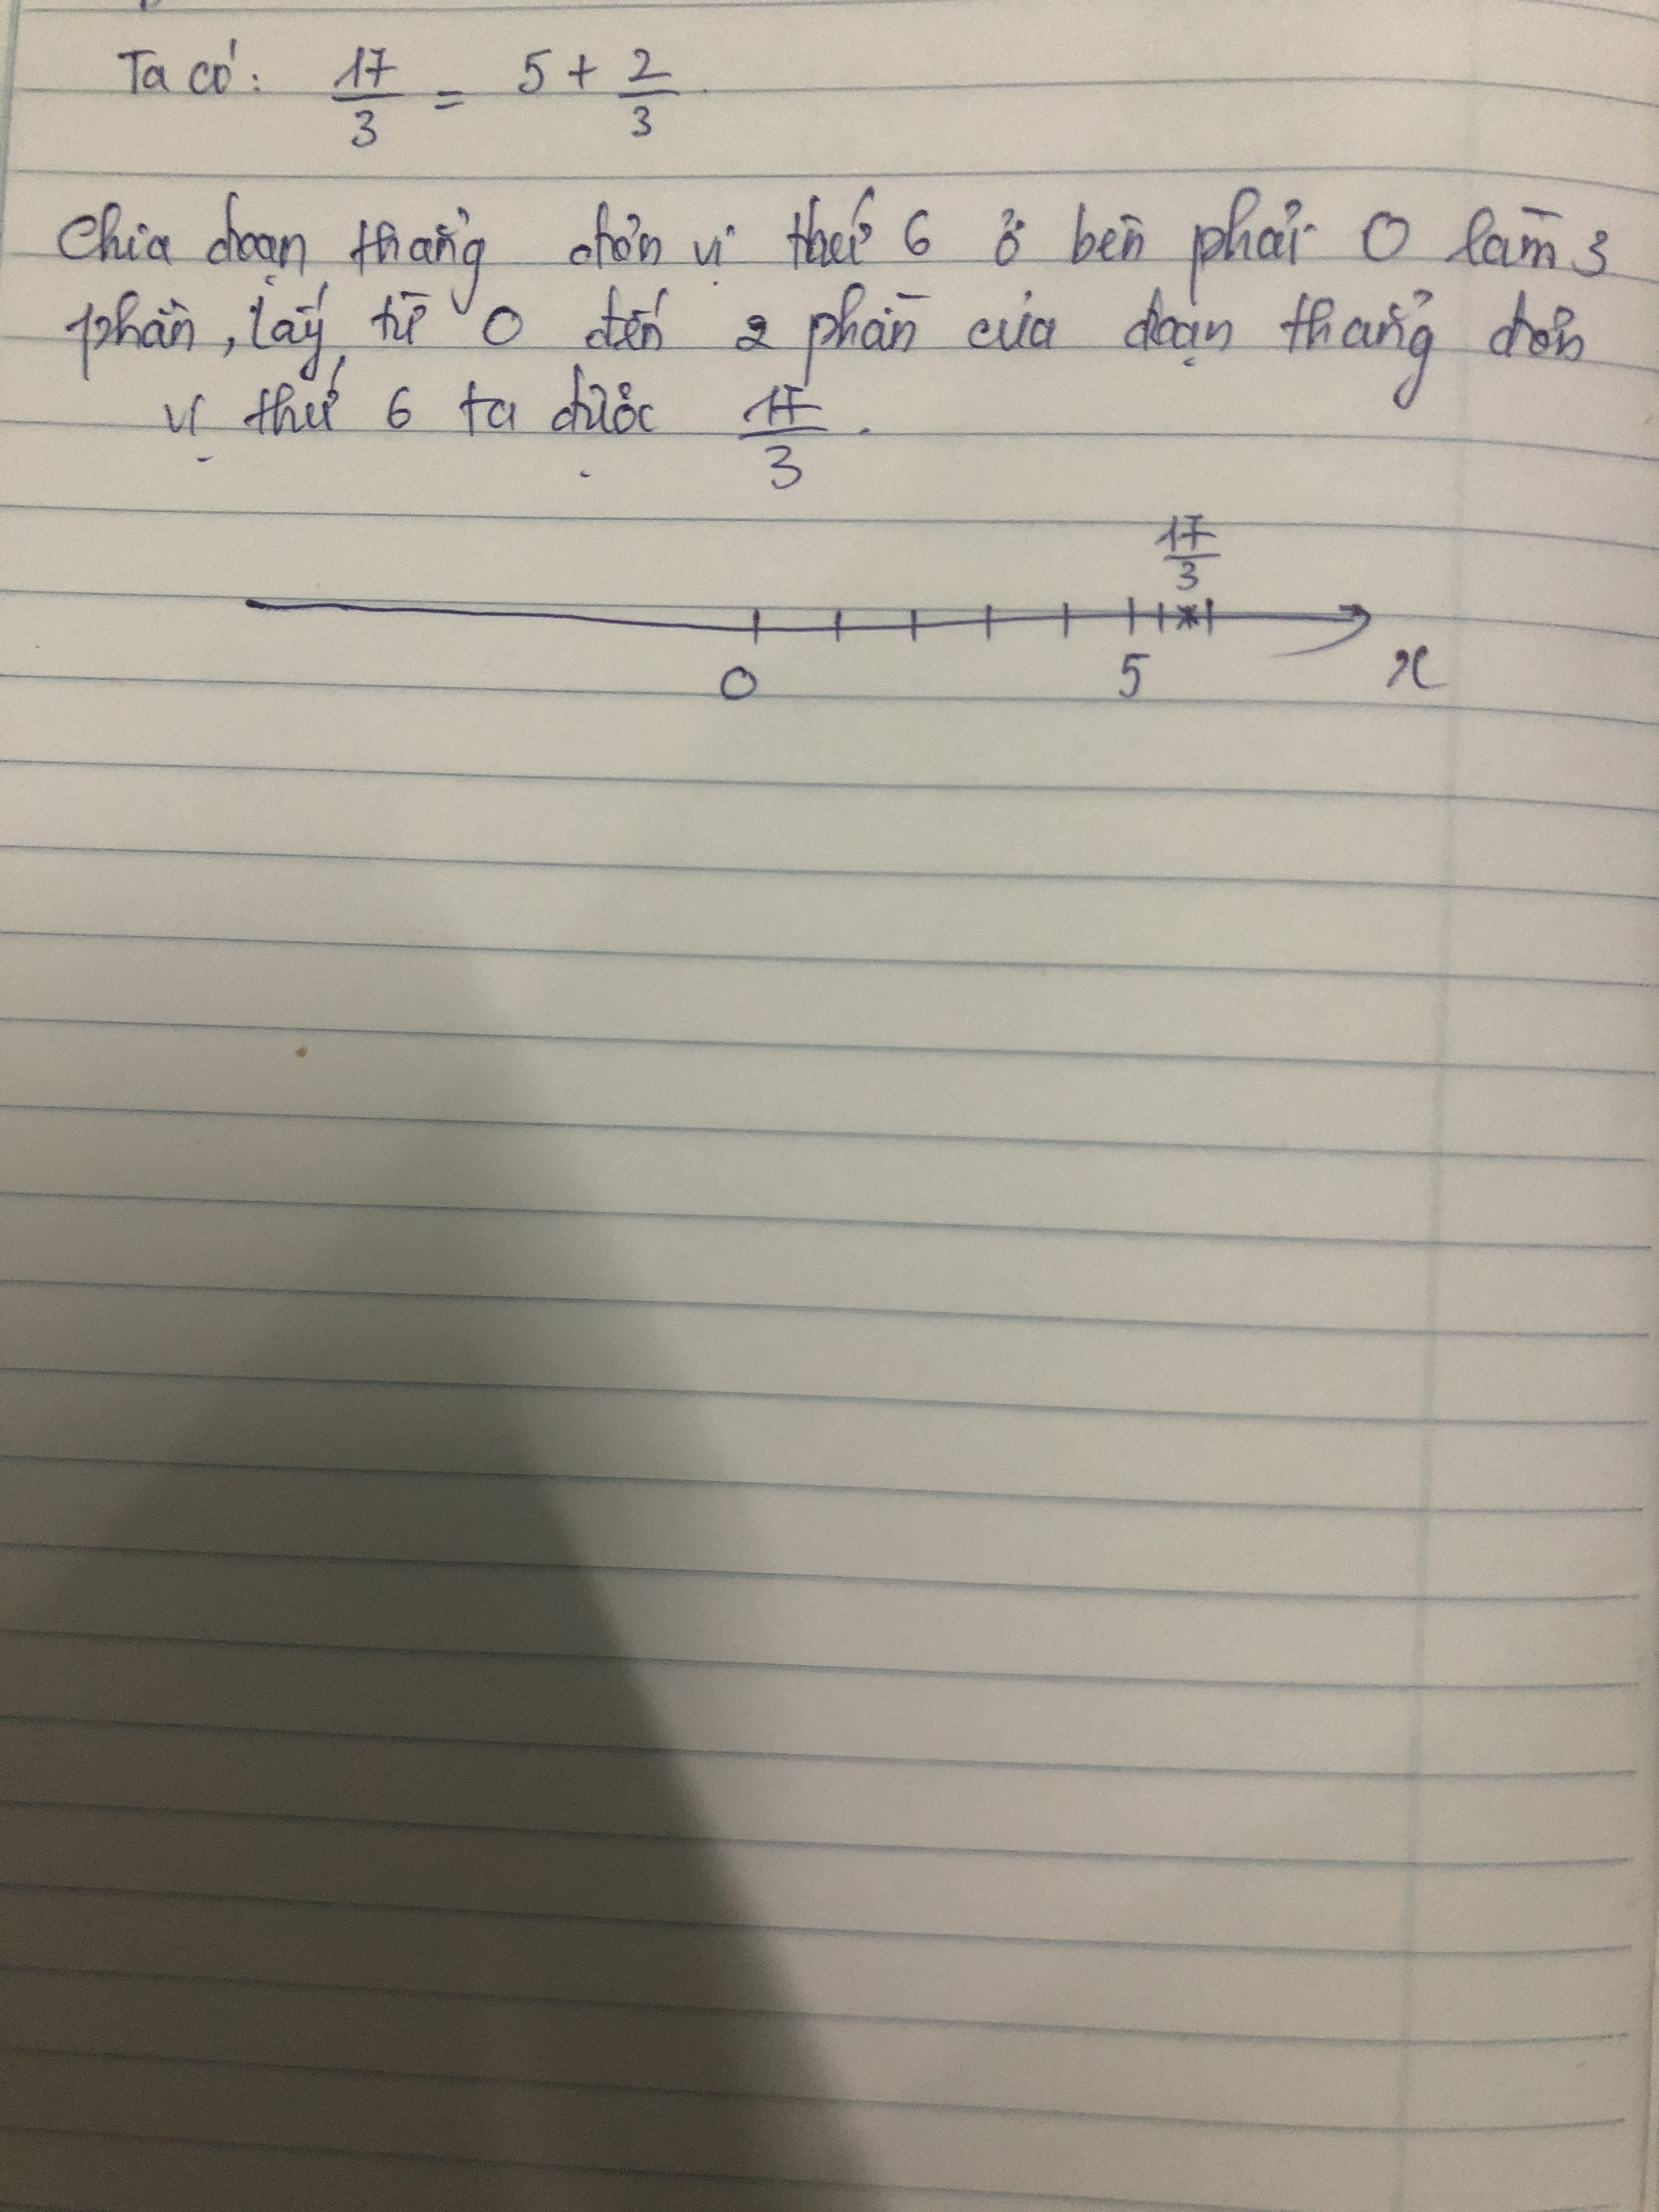 Ta có: 17/3 = 5 + 2/3.
Chia đoạn thẳng đơn vị thứ 6 ở bên phải 0 làm 3
phần, lấy từ 0 đến 2 phần của đoạn thẳng đơn
vị thứ 6 ta được 17/3.
17/3
0 5 x